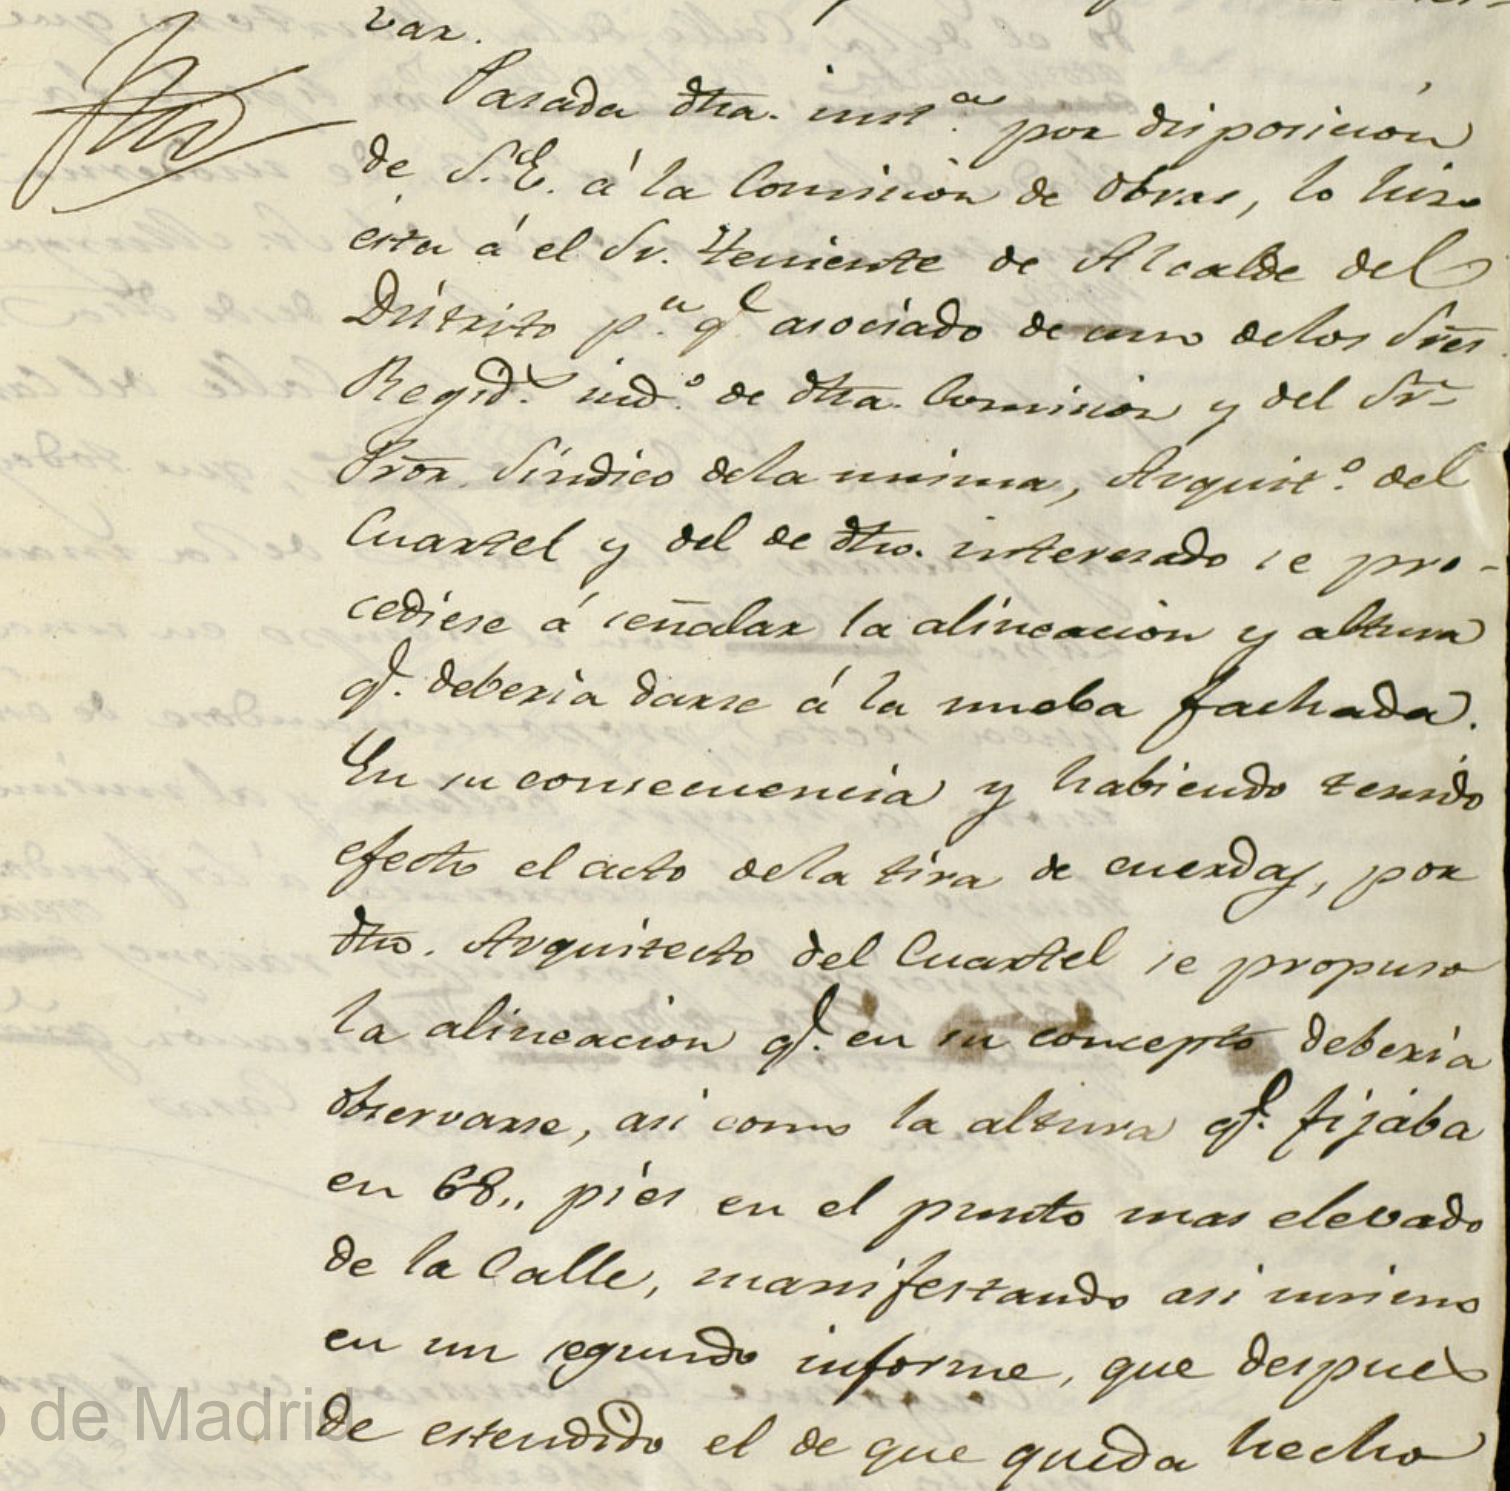 var.
Pasada dha. inst.ª por disposicion
de S.E. á la Comision de Obras, lo hizo
ésta á el Sr. Teniente de Alcalde del
Distrito p.ª q.e asociado de uno delos Sres
Regid.s ind.o de dha. Comision y del Sr.
Pror. Síndico dela misma, Arquit.o del
Cuartel y del de dho. interesado se pro-
cediese á señalar la alineacion y altura
q.e deberia darse á la nueba fachada.
En su consecuencia y habiendo tenido
efecto el acto dela tira de cuerdas, por
dho. Arquitecto del Cuartel se propuso
la alineacion q.e en su concepto deberia
observarse, asi como la altura q.e fijaba
en 68,, pies en el punto mas elevado
de la Calle, manifestando asi mismo
en un segundo informe, que despues
de estendido el de que queda hecho
o de Madrid